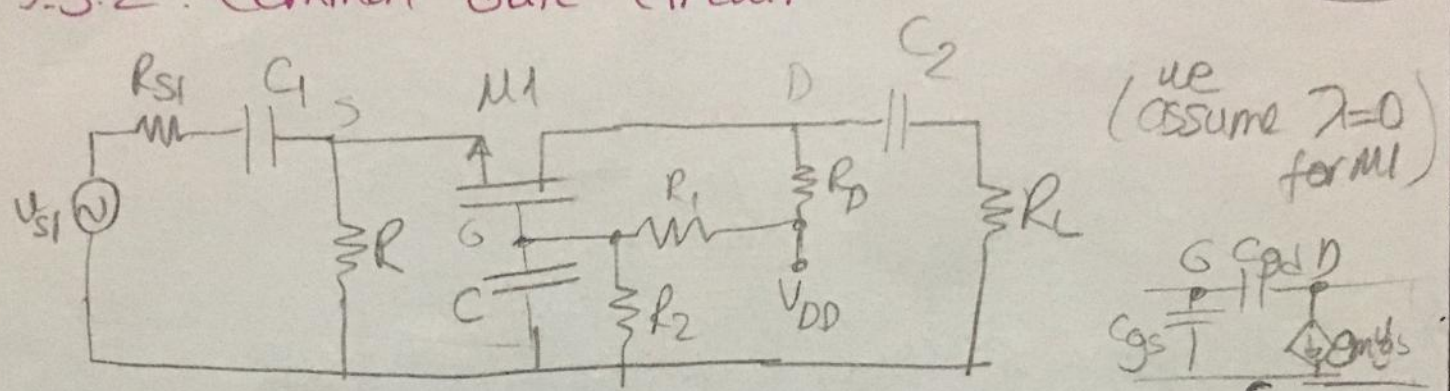 RS1 C1 S M1 D C2
(we assume λ=0 for M1)
vS1
R
G
R1
RD
RL
C
R2
VDD
G Cgd D
Cgs
gmvgs